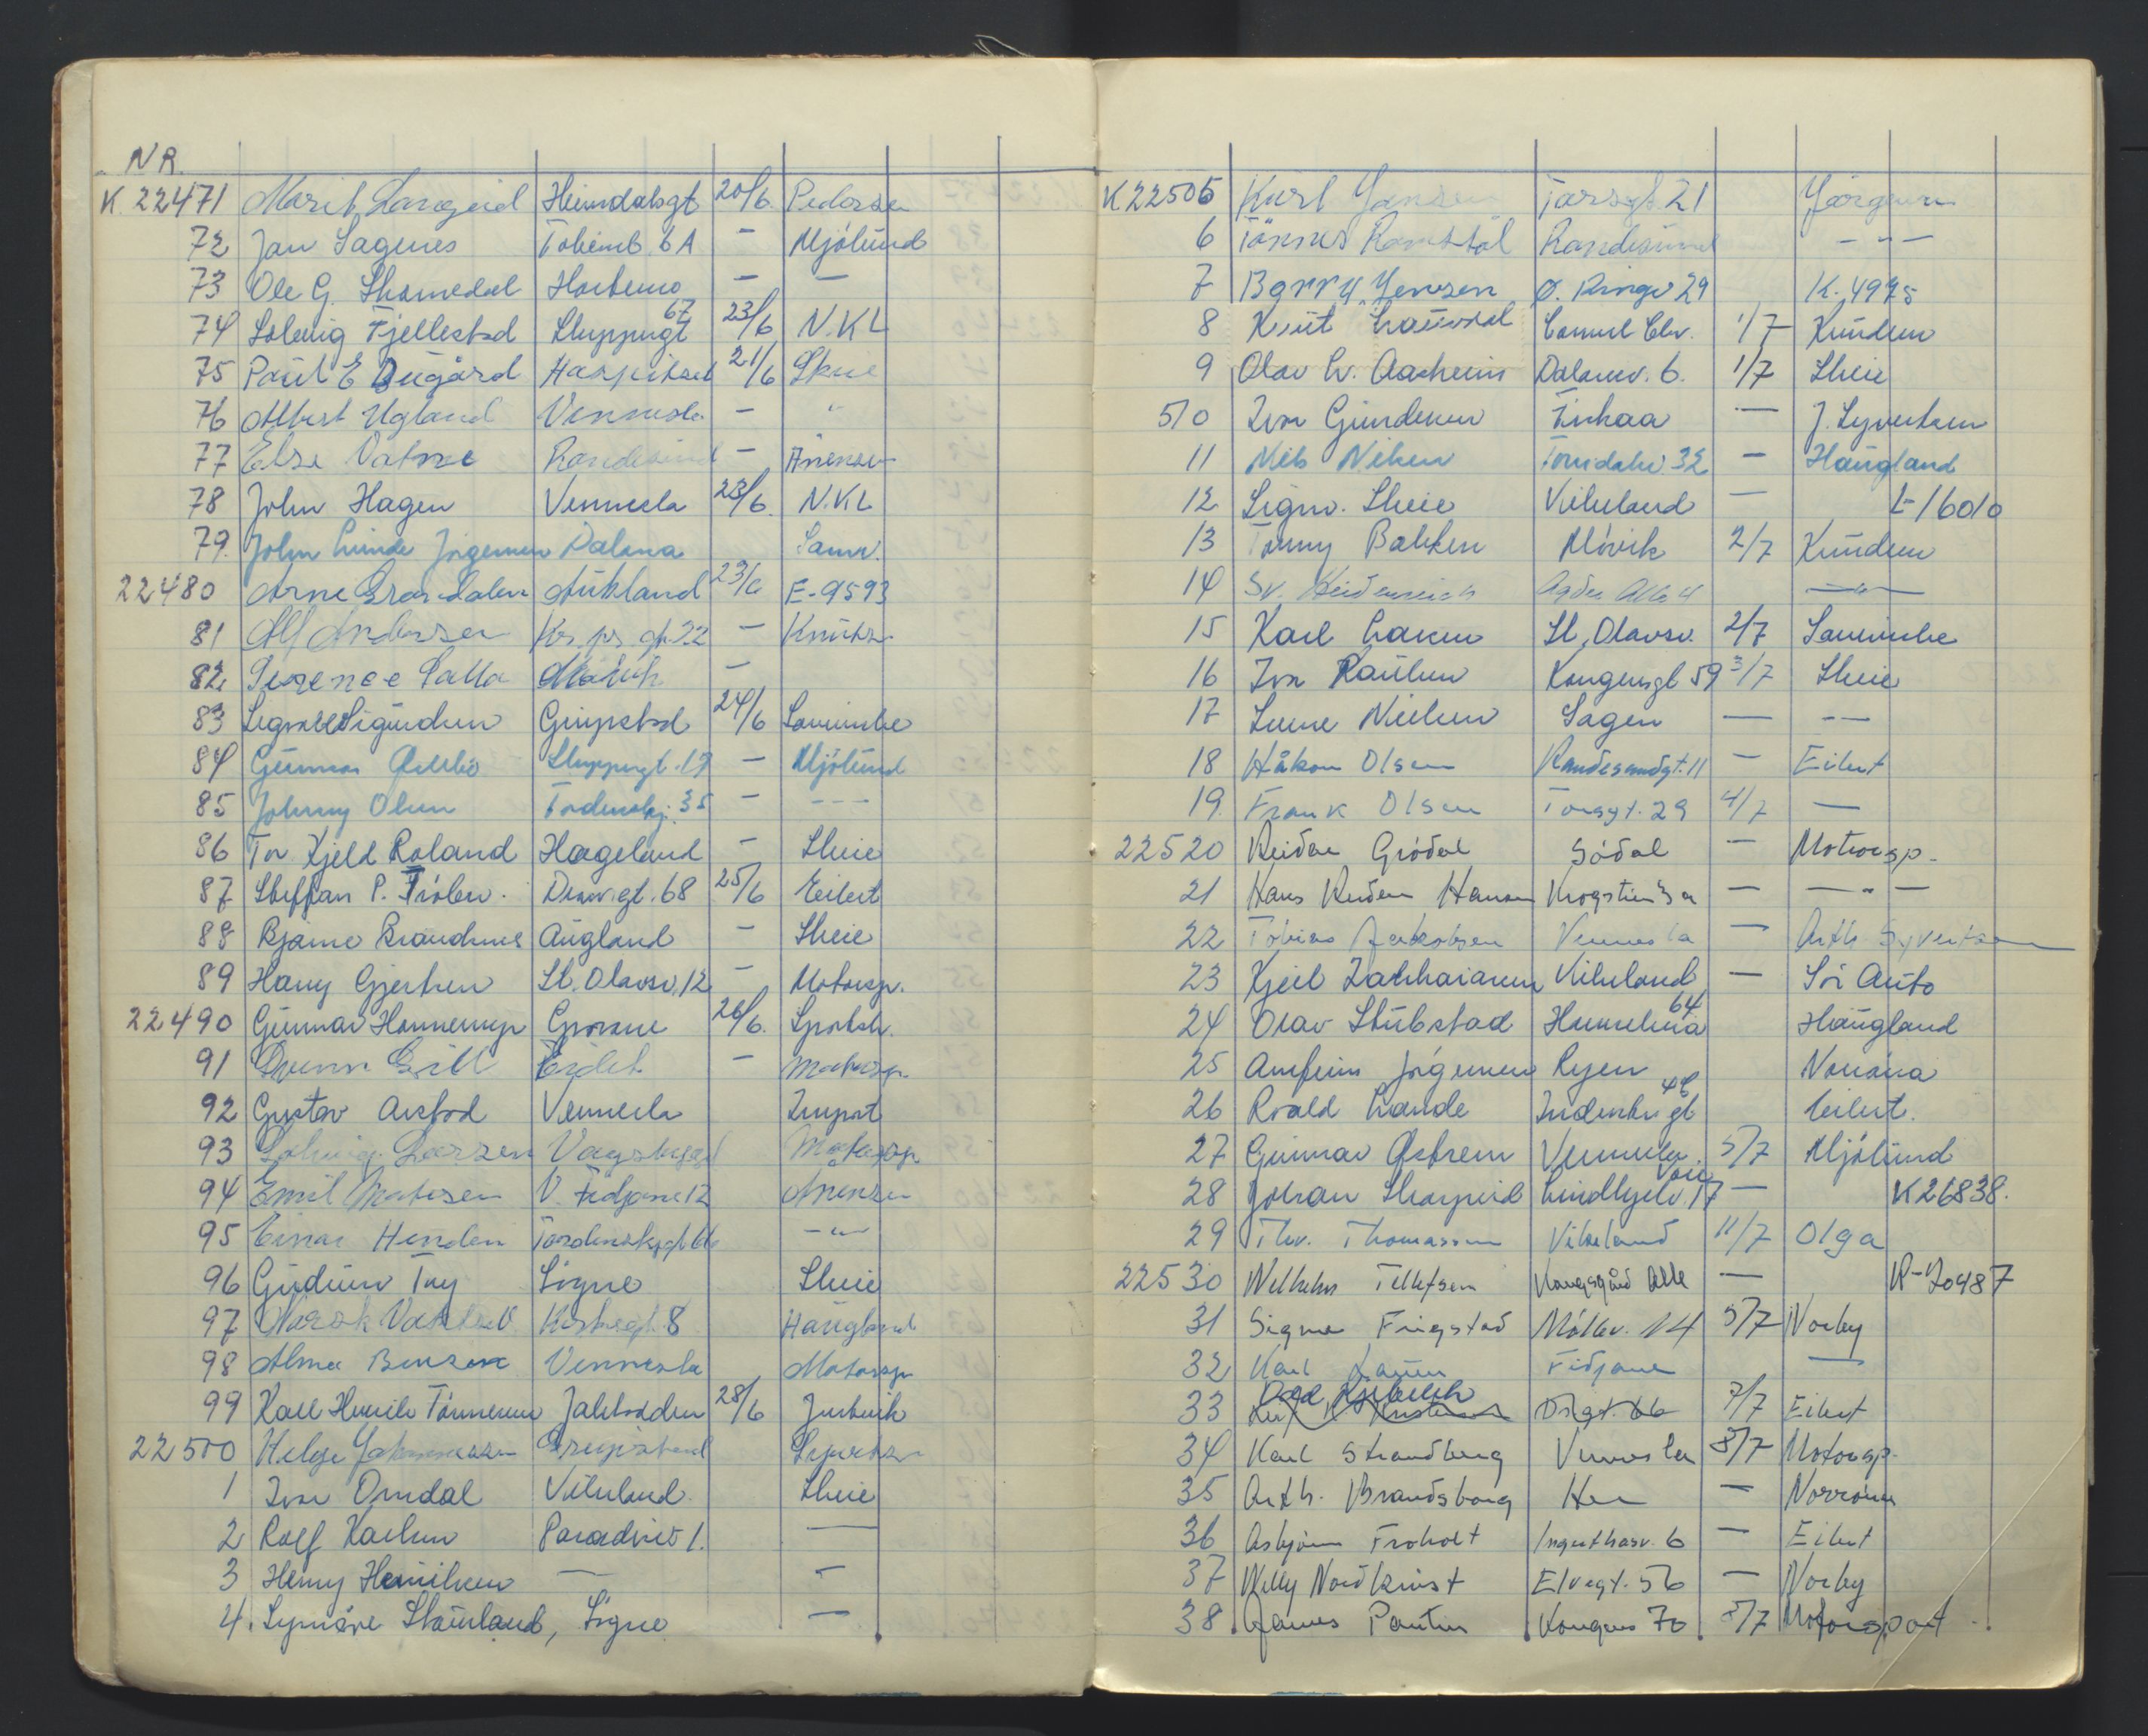 NR.
K. 22471 Marit Langeid Heimdalsgt 20/6. Pedersen
72 Jan Sagenes Tobiemb. 6A — Mjölund
73 Ole G. Skomedal Hortemo — —
74 Solveig Fjellestad Skippergt 67 23/6 N.KL
75 Paul E Bügård Hospitset 21/6 Skeie
76 Albert Ugland Vennesla — "
77 Else Vatne Randesund — Änensen
78 John Hagen Vennesla 23/6. N.KL
79. John Lunde Jörgensen Dalana Samv.
22480 Arne Grøndalen Aukland 23/6 E-9593
81 Alf Andersen — Knuts
82 Salla —
83 Sigurdsen Gripstad 24/6
84 Gunnar Skippergt. 19 — Mjölund
85 Johnny Olsen Tordenskj. 35 — - - -
86 Tor Kjeld Roland Hægeland — Skeie
87 Steffan P. Fröler. Dronn.gt. 68 25/6 Eilert
88 Bjarne Augland — Skeie
89 Harry Gjertsen St. Olavsv. 12 — Motorsp.
22490 Gunnar Hannemyr Grovane 26/6. Sportsk.
91 Svenn Grill Eidet — Motorsp.
92 Gustav Aastad Vennesla Import
93 Solveig Larsen Vaagsbygd Motorsp.
94 Emil Mortesen V. Fidjane 12 Anensen
95 Einar Henden Tordenskj.gt 66 — " —
96 Gudrun Tay Sögne Skeie
97 Kirkegt. 8 Haugland
98 Alma Bensen Vennesla Motorsp.
99 Kåre Henrik Tönnesen Jakobdden 28/6 Justvik
22500 Helge Johannessen Gripstad Syvertsen
1 Ivar Omdal Vikeland. Skeie
2 Rolf Karlsen Paradiso 1. —
3 Henry Henriksen — —
4. Synnöve Skårland, Sögne —
K22505 Karl Jansen Torsgt. 21 Jörgensen
6 Tönnes Ramstöl Randesund - " -
7 Barry Jensen Ø. Ringv 29 K. 4975
8 Knut Lauvdal 1/7 Knudsen
9 Olav Chr. Aasheim Dalanev. 6. 1/7 Skeie
510 Ivar Gundersen Finhaa — J. Syvertsen
11 Nils Nilsen Tomdalsv. 32 — Haugland
12 Sigm. Skeie Vikeland — L-16010
13 Tommy Bakken Mövik 2/7 Knudsen
14 Sv. Heidenreich Agder Alle 4 — " —
15 Karl Larsen St. Olavsv. 2/7
16 Ivar Paulsen Kongensgt 59 3/7 Skeie
17 Nielsen Sagen — - -
18 Håkon Olsen Randesundgt. 11 — Eilert
19. Frank Olsen Torsgt. 29 4/7 —
22520 Reidar Grödal Södal — Motorsp.
21 Hans Reidar Hansen Krogstien 3a — — " —
22 Tobias Jakobsen Vennesla — Arth. Syvertsen
23 Kjell Zakhariassen Vikeland — Sör Auto
24 Olav Stubstad Hennig 64 Haugland
25 Arnfinn Jörgensen Ryen Norröna
26 Roald Lande Industrigt 42 Eilert.
27 Gunnar Östrem Vennesla. 5/7 Mjölund
28 Johan Skarpeid 17 — K26838.
29 Thv. Thomassen Vikeland 11/7 Olga
22530 Wilhelm Tellefsen Kongsgård Alle — K-20487
31 Signe Frigstad Möllev. 14 5/7 Norby
32 Karl Larsen Fidjane —
33 Odd Kjebekk Drgt. 66 7/7 Eilert
34 Karl Strandberg Vennesla 8/7 Motorsp.
35 Arth. Brandsborg Her — Norröna
36 Asbjörn Froholt Ingerthasv. 6 — Eilert
37 Willy Nordkvist Elvegt. 56 — Norby
38 James Paulsen Kongens 70 8/7 Motorsport